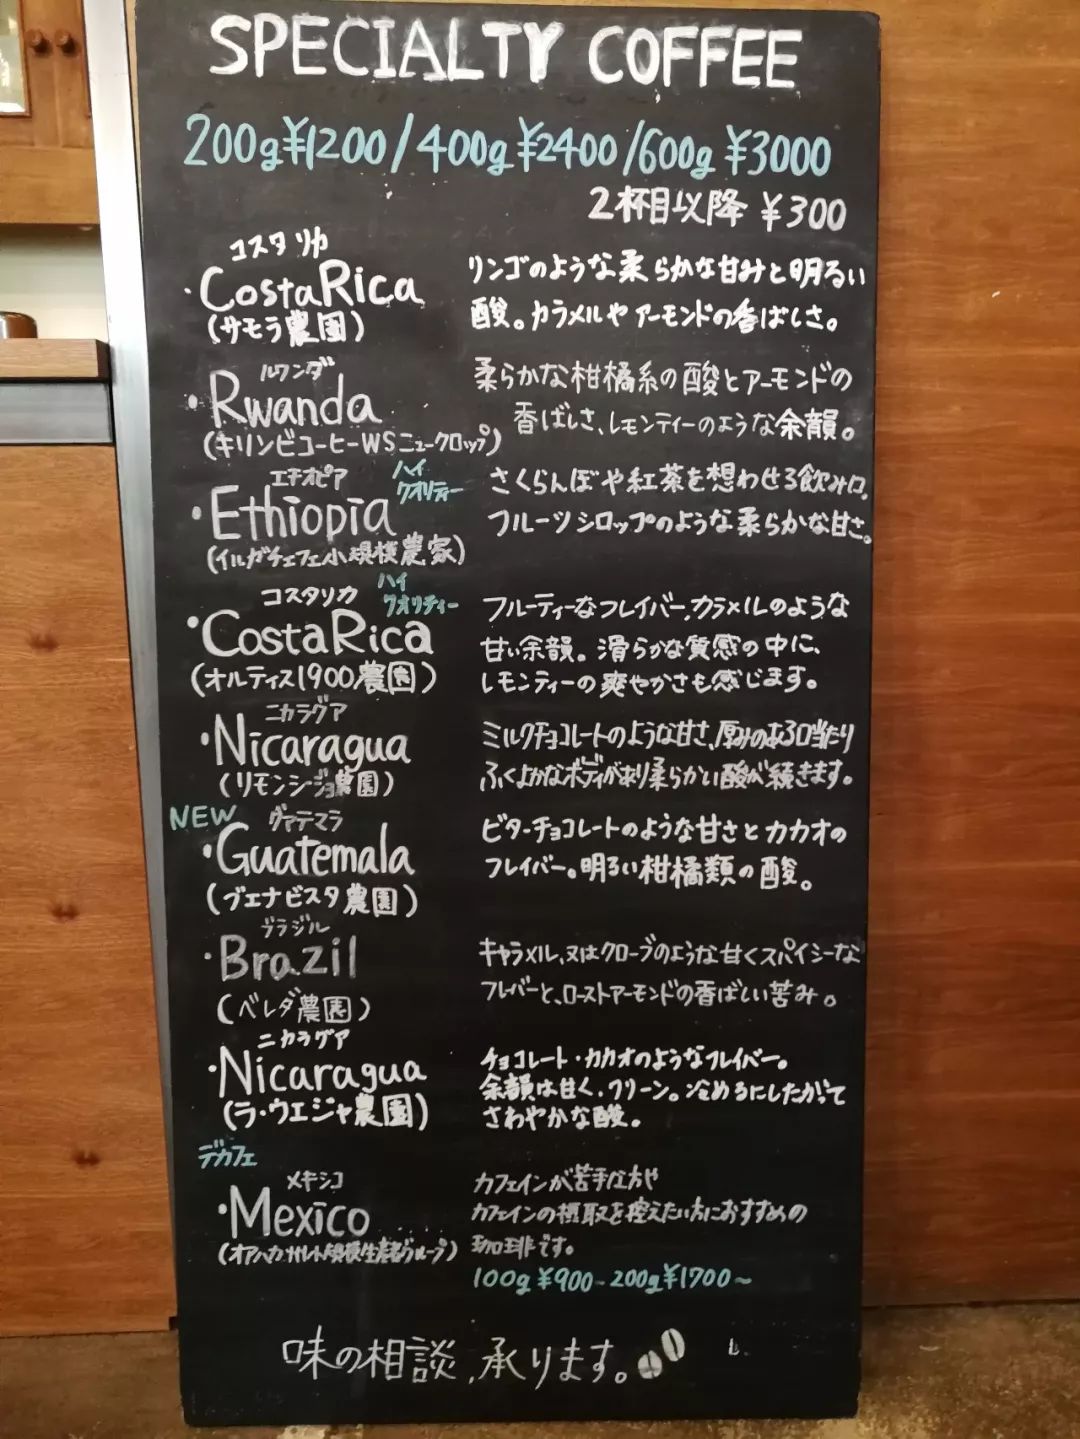 SPECIALTY COFFEE
200g¥1200/400g¥2400/600g¥3000
2杯目以降 ¥300
コスタリカ
・CostaRica
(サモラ農園)
リンゴのような柔らかな甘みと明るい
酸。カラメルやアーモンドの香ばしさ。
ルワンダ
・Rwanda
(キリンビコーヒーWSニュークロップ)
柔らかな柑橘系の酸とアーモンドの
香ばしさ、レモンティーのような余韻。
エチオピア
ハイ
クオリティー
・Ethiopia
(イルガチェフェ小規模農家)
さくらんぼや紅茶を想わせる飲み口。
フルーツシロップのような柔らかな甘さ。
コスタリカ
ハイ
クオリティー
・CostaRica
(オルティス1900農園)
フルーティーなフレイバー、カラメルのような
甘い余韻。滑らかな質感の中に、
レモンティーの爽やかさも感じます。
ニカラグア
・Nicaragua
(リモンシージョ農園)
ミルクチョコレートのような甘さ、厚みのある口当たり
ふくよかなボディがあり柔らかい酸が続きます。
NEW
グァテマラ
・Guatemala
(ブエナビスタ農園)
ビターチョコレートのような甘さとカカオの
フレイバー。明るい柑橘類の酸。
ブラジル
・Brazil
(ベレダ農園)
キャラメル、又はクローブのような甘くスパイシーな
フレバーと、ローストアーモンドの香ばしい苦み。
ニカラグア
・Nicaragua
(ラ・ウエジャ農園)
チョコレート・カカオのようなフレイバー。
余韻は甘く、クリーン。冷めるにしたがって
さわやかな酸。
デカフェ
メキシコ
・Mexico
カフェインが苦手な方や
カフェインの摂取を控えたい方におすすめの
珈琲です。
100g¥900~200g¥1700~
味の相談、承ります。